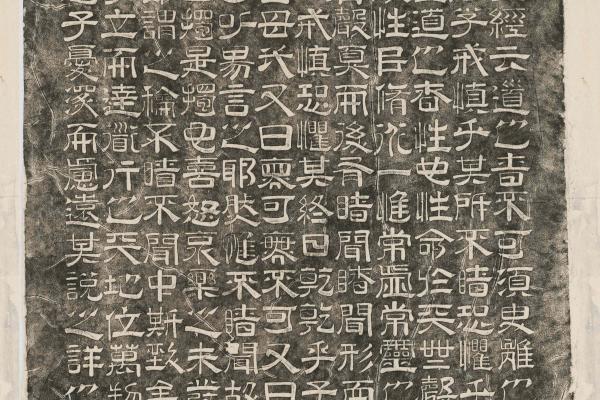 經云道之者不可須臾離之
子戒慎乎其所不睹恐懼乎
道之者性也性命於天無聲
性脩一惟常虛常靈之
莫而後有睹聞睹聞形而
戒慎恐懼其終日乾乾乎子
氏又曰無可無不可又曰
乎易言之耶然惟不睹聞故
獨是獨也喜怒哀樂之未發
謂之不睹不聞中斯致
立而達道行之天地位萬物
子憂深而慮遠其說之詳